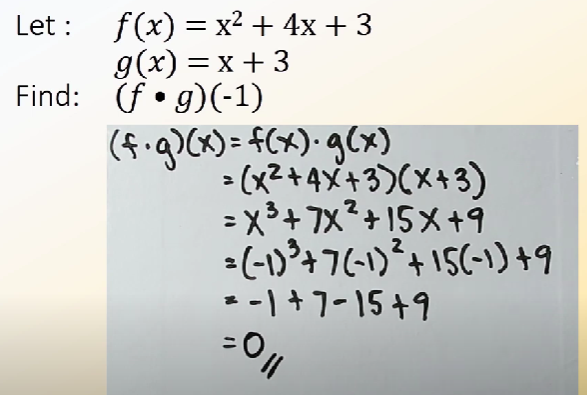 Let :   f(x) = x² + 4x + 3
g(x) = x + 3
Find:   (f • g)(-1)
(f·g)(x) = f(x)·g(x)
= (x²+4x+3)(x+3)
= x³+7x²+15x+9
= (-1)³+7(-1)²+15(-1)+9
= -1+7-15+9
= 0//